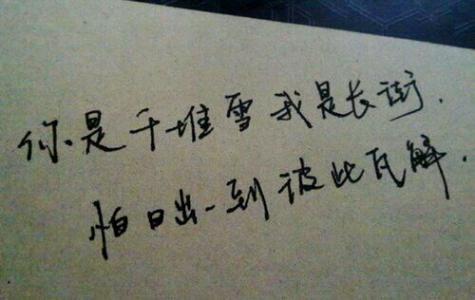 你是千堆雪我是长街.
怕日出一到彼此瓦解.